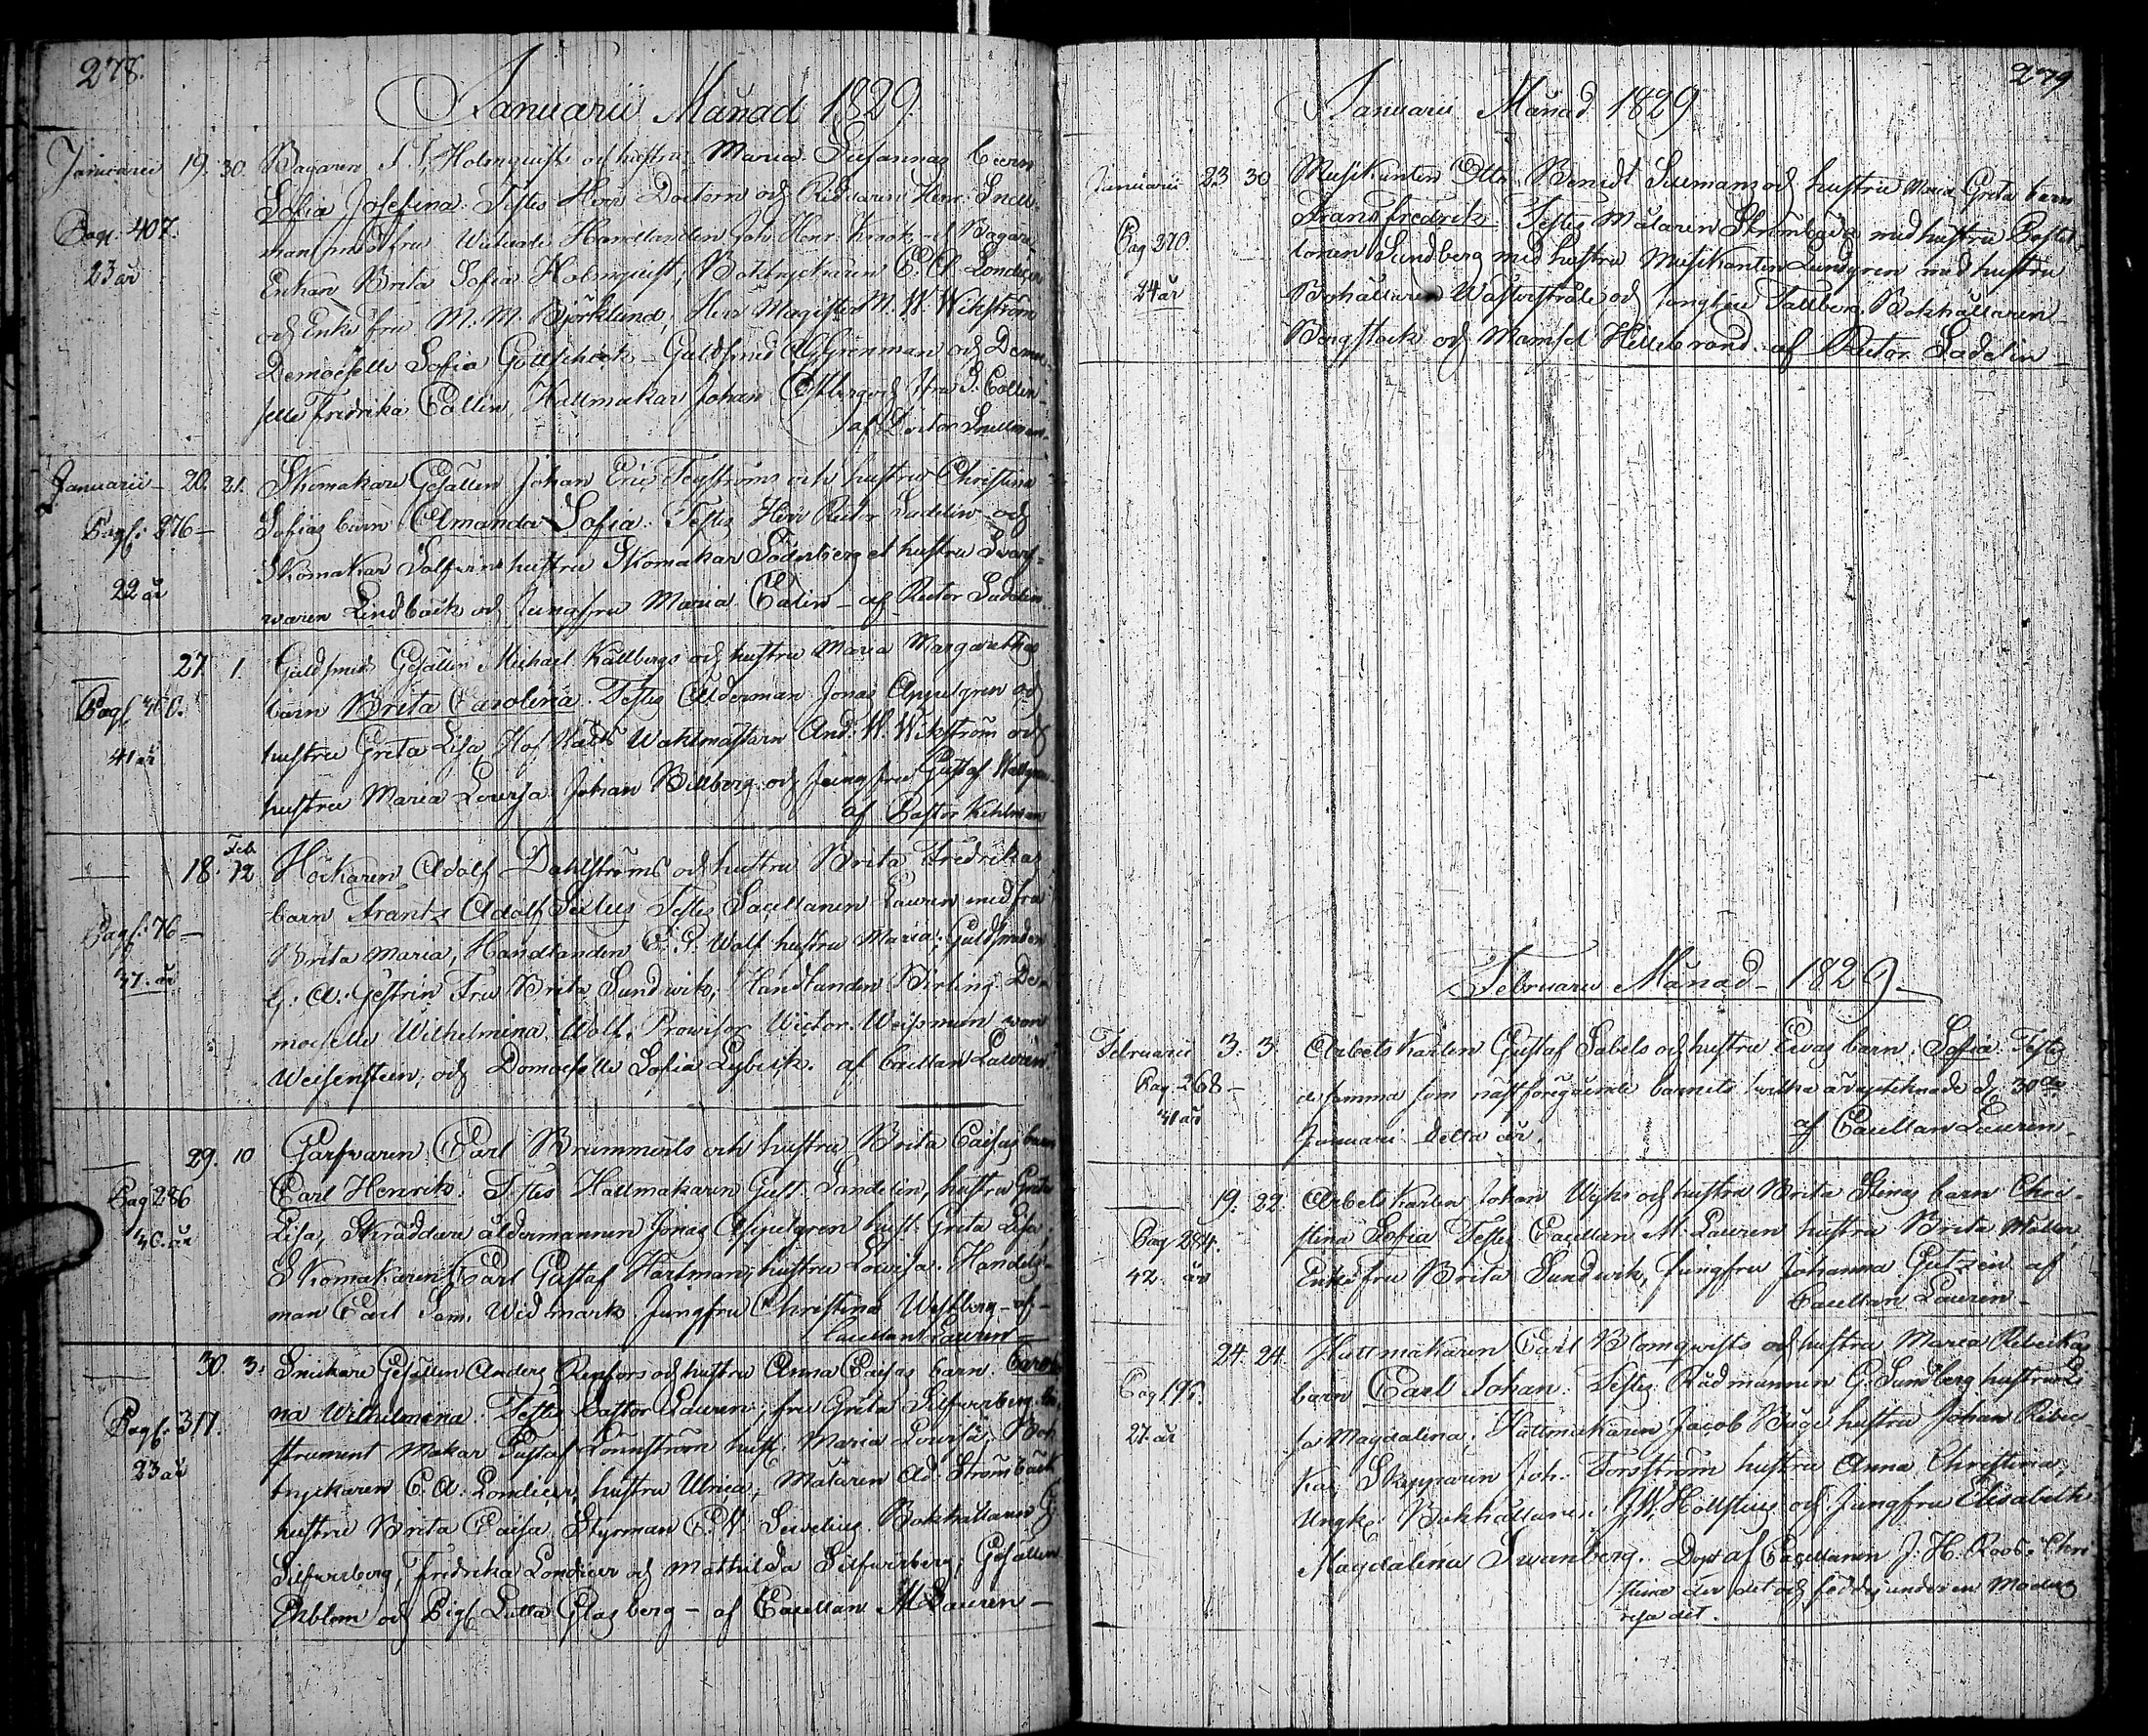 278.
Januarii Månad 1829.
Januarii 19. 30. Bagaren Holmquists och hustru Maria Susannas barn
Sofia Josefina. Testes Herr Doctorn och Riddaren Henr. Snell-
Pag. 407. man med fru Handlanden Joh. Henr. och Bagare
23 år Enkan Brita Sofia Holmquist, Boktryckaren C. A. Londicer
och Enke fru M. M. Björklund, Herr Magister M. W. Wikström
Demoiselle Sofia Gottschalk Guldsmed Grenman och Demoi-
selle Fredrika Collin, Hattmakar Johan Östberg och fru S. Collin
af Doctor Snellman.
Januarii 20. 21. Skomakare Gesällen Johan Eric Tegströms och hustru Christina
Sofias barn Elmanda Sofia. Testes Herr Rector Sadelin och
Pag. 276 Skomakar hustru Skomakar Söderberg et hustru Svarf-
22 år waren Lindbäck och Jungfru Maria Calin - af Rector Sadelin.
27. 1. Guldsmeds Gesällen Michael Källbergs och hustru Maria Margarethas
Pag. barn Brita Carolina. Testes Ålderman Jonas Appelgren och
41 år hustru Greta Lisa, Hof Rätts Waktmästarn And. W. Wikström och
hustru Maria Lovisa Johan Billberg och Jungfru Gustaf
af Pastor Kihlman
Feb.
18. 12 Hökaren Adolf Dahlströms och hustru Brita Fredrikas
barn Frantz Adolf Testes Sacellanen Lauren med fru
Pag. 76 Brita Maria, Handlanden C. P. Wolf hustru Maria, Guldsmeden
37 år G. A. Gestrin Fru Brita Sundwik, Handlanden Birling Dem
moiselle Wilhelmina Wolf, Provisor Wictor Weissman von
Weisenstein, och Demoiselle Sofia Lybeck. af Cacellan Lauren
29. 10 Garfvaren Carl Brummerts och hustru Brita Caisas barn
Pag 286 Carl Henrik. Testes Hattmakaren Gust. Sandelin, hustru Greta
Lisa, Skräddare åldermannen Jonas Appelgren hust. Greta Lisa
Skomakaren Carl Gustaf Hartman, hustru Lovisa. Handels-
man Carl Sam. Widmark Jungfru Christina Westberg - af -
Cacellan Lauren
30. 3. Snickare Gesällen Anders Renfors och hustru Anna Caisas barn. Caroli
na Wilhelmina. Testes Pastor Lauren; fru Greta Silfverberg, In
Pag. 317. strument Makar Gustaf Lönnström hust. Maria Lovisa; Bok
23 år tryckaren C. A. Londicer, hustru Ulrica, Målaren Ad. Strömbäck
hustru Brita Caisa, Styrman C. N. Sevelius. Bokhållaren G
Silfverberg, Fredrika Londicer och Mathilda Silfverberg, Gesällen
Ekblom och Pig. Lotta Glasberg - af Cacellan M Lauren -
279
Januarii Månad 1829
Januarii 23 30 Musikanten Otto Bendt och hustru Maria Greta barn
Frans Fredrik. Testes Målaren Strömbäck med hustru
Pag 370. Sundberg med hustru Musikanten Lundgren med hustru
24 år Bokhållaren Wasastråle och Jungfru Tallberg, Bokhållaren
Bergstock och Mamsel Hillebrand. af Rector Sadelin
Februarii Månad - 1829.
Februarii 3. 3. Arbets Karlen Gustaf Sabels och hustru Evas barn. Sofia. Testes
Pag. 268 de samma som nästföregående barnets hvilka äro antecknade d. 30de
41 år Januari detta år. af Cacellan Lauren.
19. 22. Arbets Karlen Johan Wiks och hustru Brita Stinas barn Chri-
Pag 284. stina Sofia Testes Cacellan M. Lauren hustru Brita
42. år Enkefru Brita Sundwik, Jungfru Johanna af
Cacellan Lauren
24. 24. Hattmakaren Carl Blomqvists och hustru Maria Rebeckas
Pag barn Carl Johan. Testes Rådmannen G. Sundberg hustru Lo
27 år sa Magdalina, Hattmakaren Jacob hustru Johan Rebec-
ka, Skepparen Joh. Forsström hustru Anna Christina,
Ungk. Bokhållaren J. W. Hollstius och Jungfru Elisabeth
Magdalina Swanberg. Döpt af Cacellanen J. H. Roos i Chri
stina der det och föddes under en Moders
resa dit.